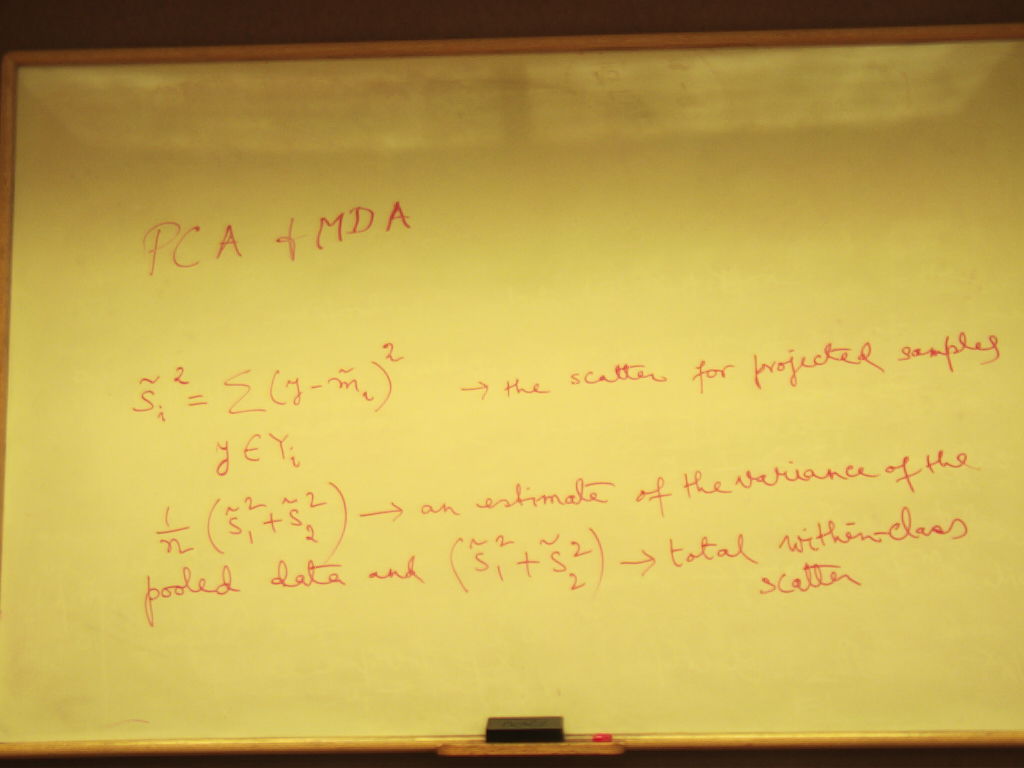 PCA & MDA
s̃ᵢ² = ∑ (y - m̃ᵢ)² → the scatter for projected samples
y ∈ Yᵢ
1/n (s̃₁² + s̃₂²) → an estimate of the variance of the
pooled data and (s̃₁² + s̃₂²) → total within-class
scatter